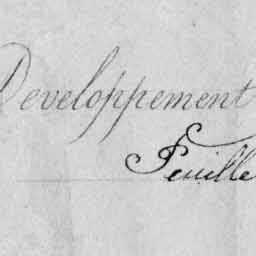 Developpement
Feuille